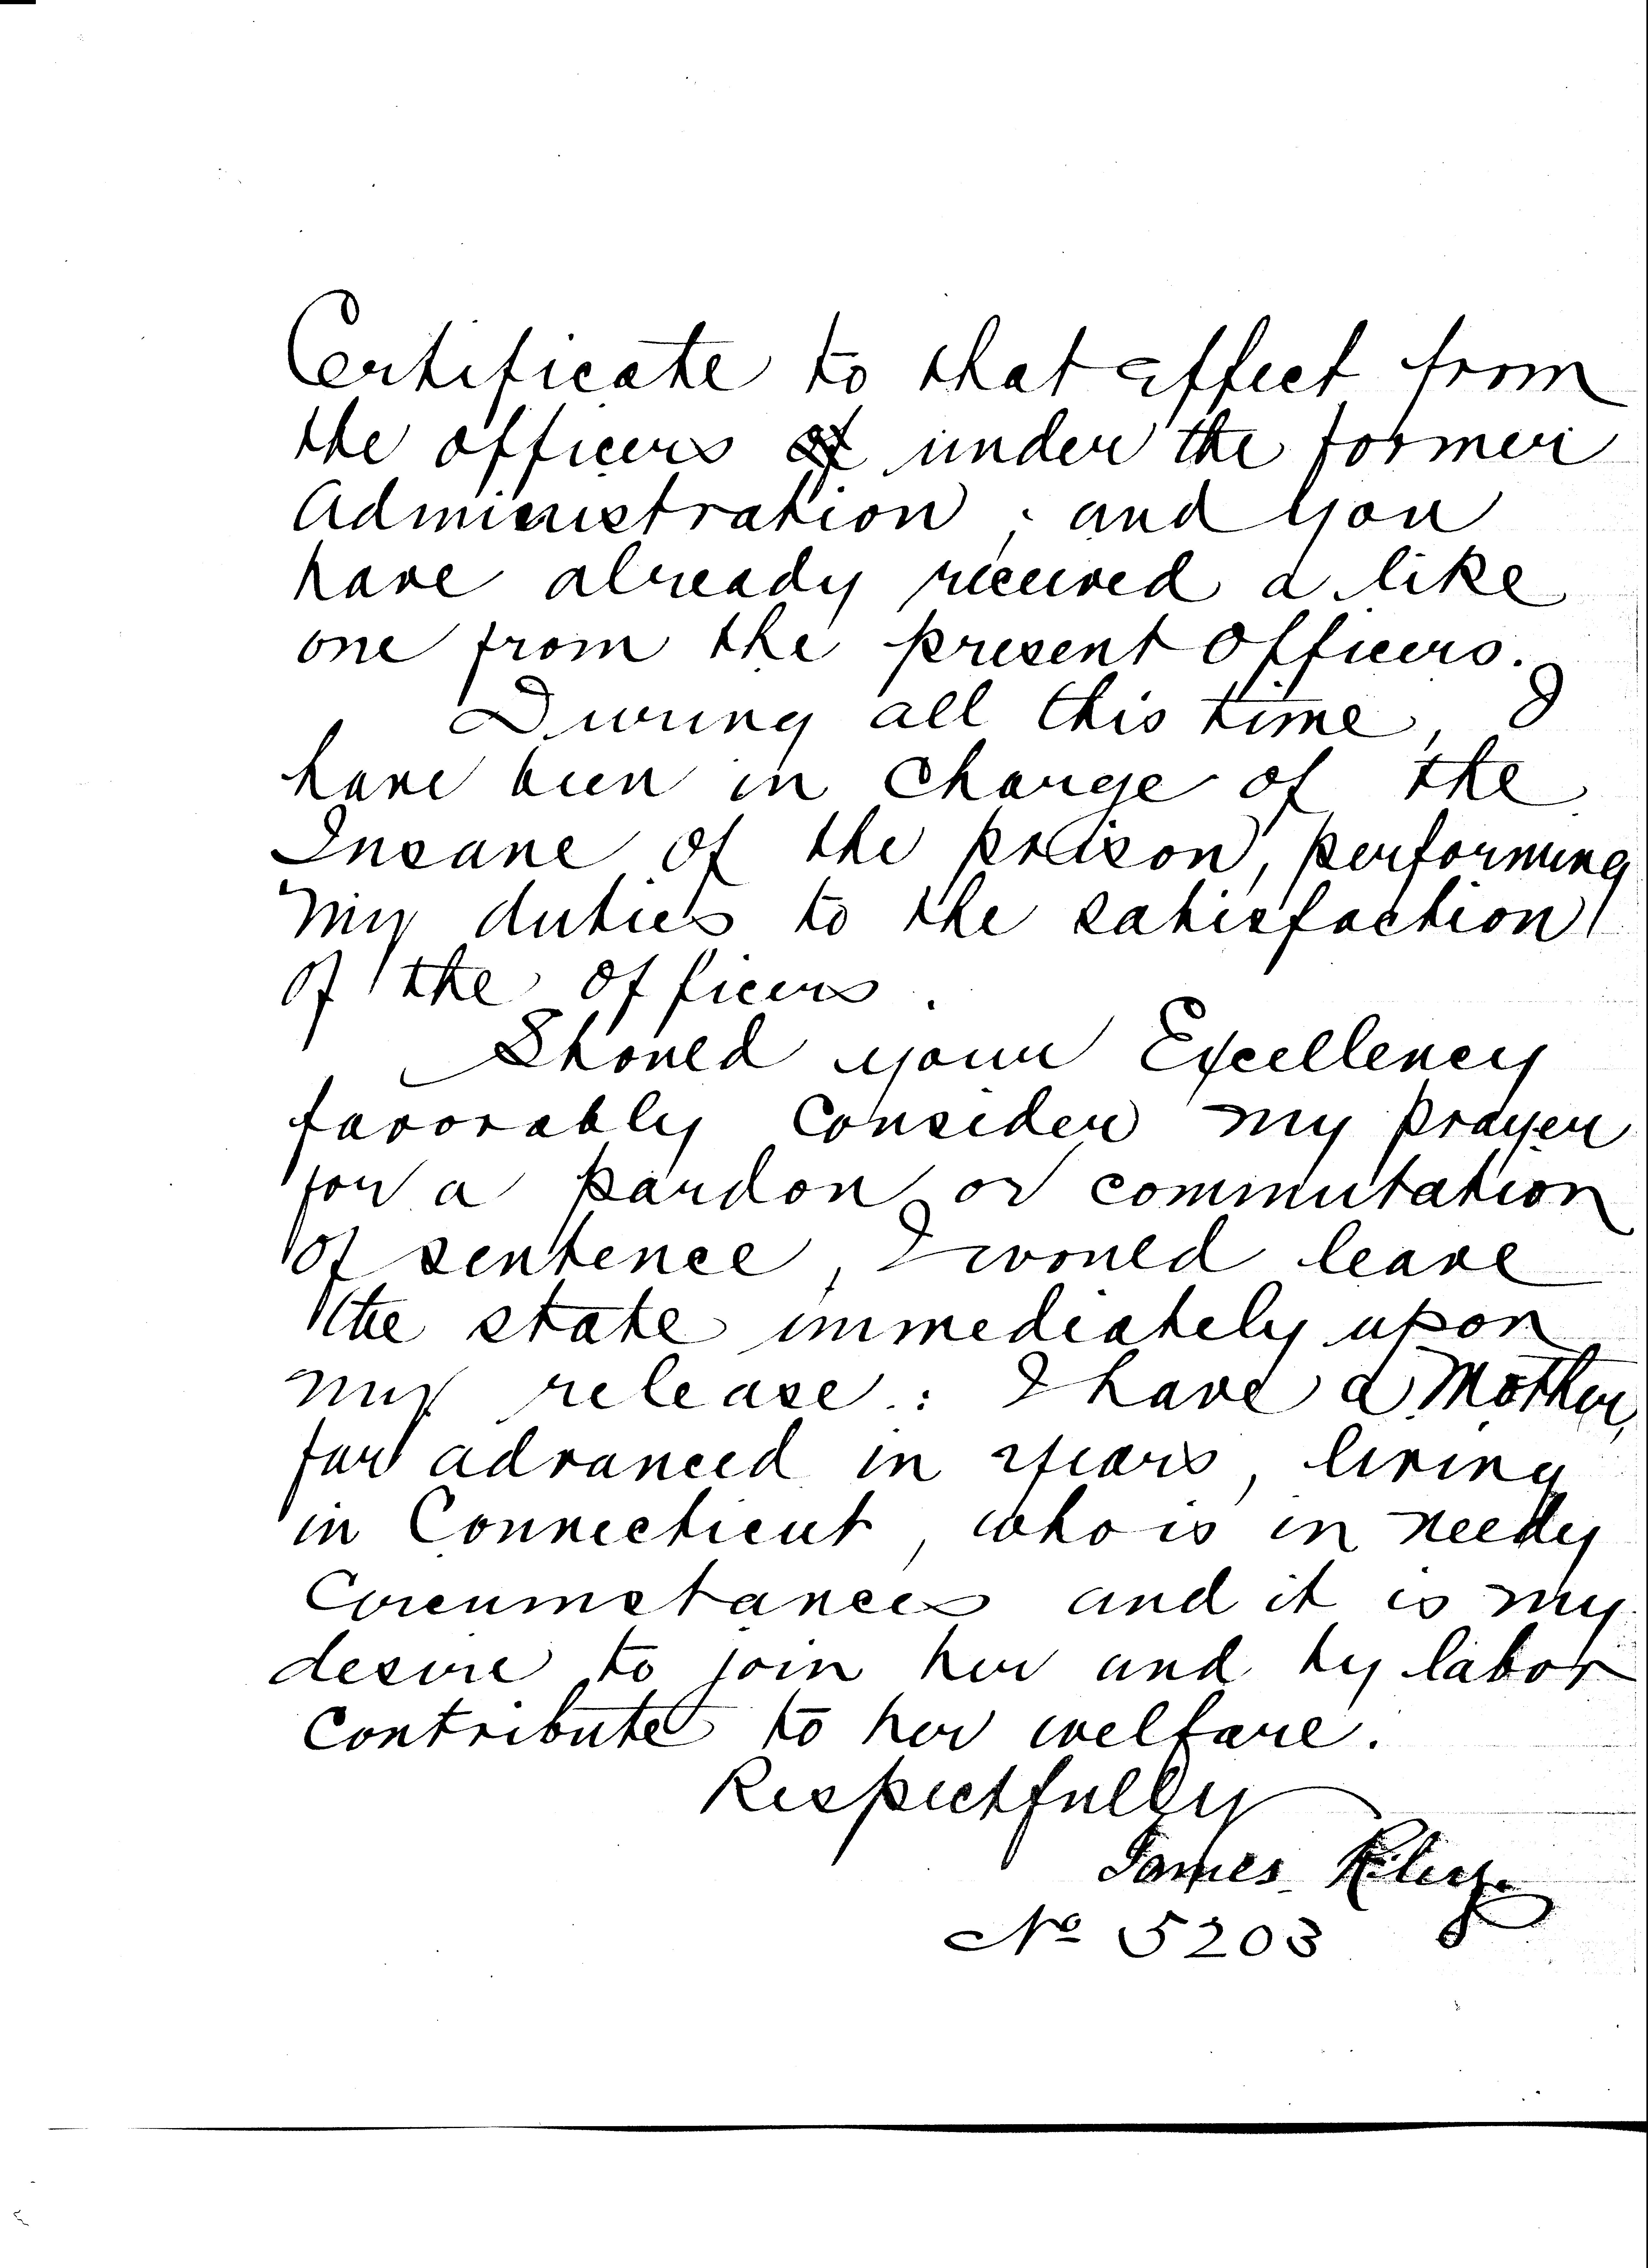 Certificate to that effect from
the officers of under the former
Administration; and you
have already received a like
one from the present officers.
During all this time, I
have been in charge of the
Insane of the prison, performing
my duties to the satisfaction
of the officers.
Should your Excellency
favorably consider my prayer
for a pardon or commutation
of sentence, I would leave
the state immediately upon
my release: I have a Mother,
far advanced in years, living
in Connecticut, who is in needy
Circumstances and it is my
desire to join her and by labor
contribute to her welfare.
Respectfully
James Riley.
No 5203